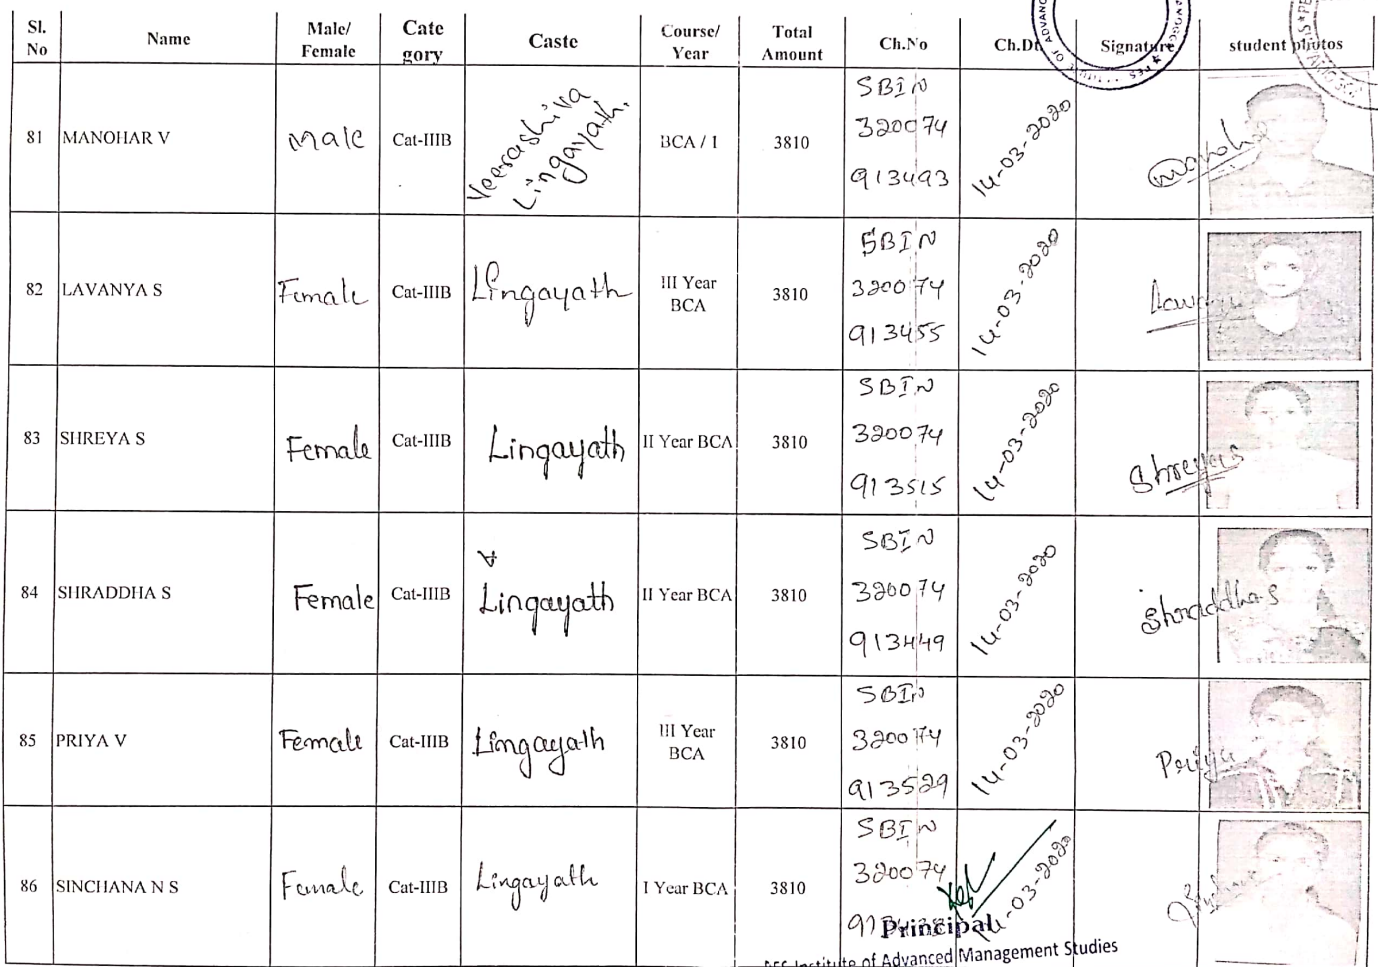 Sl. No Name Male/ Female Cate gory Caste Course/ Year Total Amount Ch.No Ch.Dt Signature student photos
81 MANOHAR V Male Cat-IIIB Veerashiva Lingayath. BCA / I 3810 SBIN 320074 913493 14-03-2020 Manohar
82 LAVANYA S Female Cat-IIIB Lingayath III Year BCA 3810 SBIN 320074 913455 14-03-2020
83 SHREYA S Female Cat-IIIB Lingayath II Year BCA 3810 SBIN 320074 913515 14-03-2020 Shreya S
84 SHRADDHA S Female Cat-IIIB Lingayath II Year BCA 3810 SBIN 320074 913449 14-03-2020 Shraddha S
85 PRIYA V Female Cat-IIIB Lingayath III Year BCA 3810 SBIN 320074 913529 14-03-2020 Priya
86 SINCHANA N S Female Cat-IIIB Lingayath I Year BCA 3810 SBIN 320074 14-03-2020
Principal
PES Institute of Advanced Management Studies